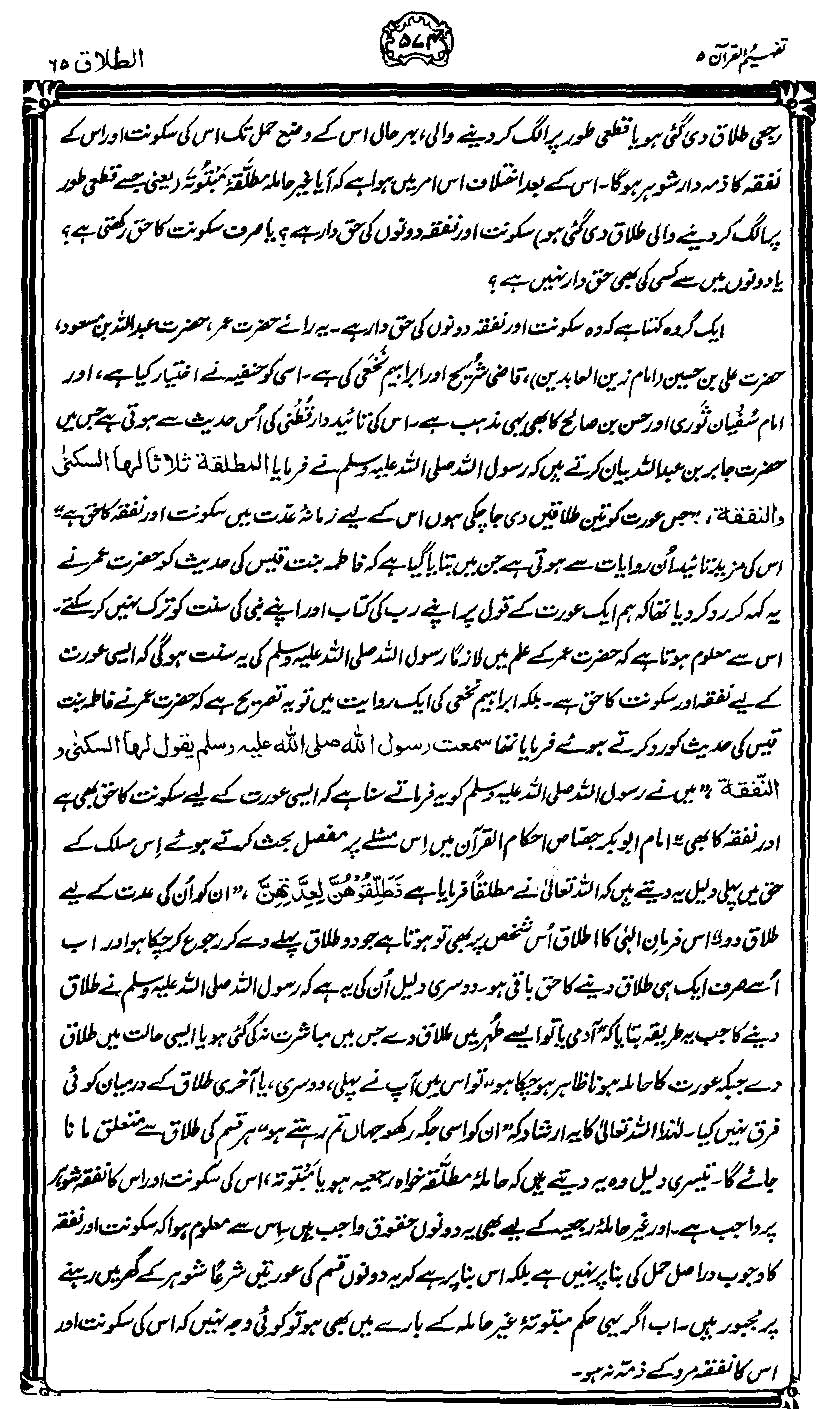 تفہیم القرآن ۵
۵۷۴
الطلاق ۶۵
رجعی طلاق دی گئی ہو یا قطعی طور پر الگ کر دینے والی، بہر حال اس کے وضع حمل تک اس کی سکونت اور اس کے
نفقہ کا ذمہ دار شوہر ہوگا۔ اس کے بعد اختلاف اس امر میں ہوا ہے کہ آیا غیر حاملہ مطلقۂ مَبْتُوتہ (یعنی جسے قطعی طور
پر الگ کر دینے والی طلاق دی گئی ہو) سکونت اور نفقہ دونوں کی حق دار ہے؟ یا صرف سکونت کا حق رکھتی ہے؟
یا دونوں میں سے کسی کی بھی حق دار نہیں ہے؟
ایک گروہ کہتا ہے کہ وہ سکونت اور نفقہ دونوں کی حق دار ہے۔ یہ رائے حضرت عمر، حضرت عبداللہ بن مسعود،
حضرت علی بن حسین (امام زین العابدین)، قاضی شُریح اور ابراہیم نَخعی کی ہے۔ اسی کو حنفیہ نے اختیار کیا ہے، اور
امام سُفیان ثَوری اور حسن بن صالح کا بھی یہی مذہب ہے۔ اس کی تائید دار قُطنی کی اُس حدیث سے ہوتی ہے جس میں
حضرت جابر بن عبداللہ بیان کرتے ہیں کہ رسول اللہ صلی اللہ علیہ وسلم نے فرمایا المطلقة ثلاثا لها السكنٰى
والنفقة، ”جس عورت کو تین طلاقیں دی جا چکی ہوں اس کے لیے زمانۂ عدت میں سکونت اور نفقہ کا حق ہے“
اس کی مزید تائید اُن روایات سے ہوتی ہے جن میں بتایا گیا ہے کہ فاطمہ بنت قیس کی حدیث کو حضرت عمر نے
یہ کہہ کر رد کر دیا تھا کہ ہم ایک عورت کے قول پر اپنے رب کی کتاب اور اپنے نبی کی سنت کو ترک نہیں کر سکتے۔
اس سے معلوم ہوتا ہے کہ حضرت عمر کے علم میں لازماً رسول اللہ صلی اللہ علیہ وسلم کی یہ سنت ہوگی کہ ایسی عورت
کے لیے نفقہ اور سکونت کا حق ہے۔ بلکہ ابراہیم نخعی کی ایک روایت میں تو یہ تصریح ہے کہ حضرت عمر نے فاطمہ بنت
قیس کی حدیث کو رد کرتے ہوئے فرمایا تھا سمعت رسول الله صلى الله عليه وسلم يقول لها السكنٰى و
النّفقة، ”میں نے رسول اللہ صلی اللہ علیہ وسلم کو یہ فرماتے سنا ہے کہ ایسی عورت کے لیے سکونت کا حق بھی ہے
اور نفقہ کا بھی“ امام ابوبکر جصّاص احکام القرآن میں اس مسئلے پر مفصل بحث کرتے ہوئے اِس مسلک کے
حق میں پہلی دلیل یہ دیتے ہیں کہ اللہ تعالیٰ نے مطلقاً فرمایا ہے فَطَلِّقُوْهُنَّ لِعِدَّتِهِنَّ، ”ان کو اُن کی عدت کے لیے
طلاق دو“ اس فرمانِ الہٰی کا اطلاق اُس شخص پر بھی تو ہوتا ہے جو دو طلاق پہلے دے کر رجوع کر چکا ہو اور اب
اُسے صرف ایک ہی طلاق دینے کا حق باقی ہو۔ دوسری دلیل اُن کی یہ ہے کہ رسول اللہ صلی اللہ علیہ وسلم نے طلاق
دینے کا جب یہ طریقہ بتایا کہ ”آدمی یا تو ایسے طُہر میں طلاق دے جس میں مباشرت نہ کی گئی ہو یا ایسی حالت میں طلاق
دے جبکہ عورت کا حاملہ ہونا ظاہر ہو چکا ہو“ تو اس میں آپ نے پہلی، دوسری، یا آخری طلاق کے درمیان کوئی
فرق نہیں کیا۔ لہٰذا اللہ تعالیٰ کا یہ ارشاد کہ ”ان کو اسی جگہ رکھو جہاں تم رہتے ہو“ ہر قسم کی طلاق سے متعلق مانا
جائے گا۔ تیسری دلیل وہ یہ دیتے ہیں کہ حاملۂ مطلّقہ خواہ رجعیہ ہو یا مَبْتوتہ، اس کی سکونت اور اس کا نفقہ شوہر
پر واجب ہے۔ اور غیر حاملۂ رجعیہ کے لیے بھی یہ دونوں حقوق واجب ہیں۔ اِس سے معلوم ہوا کہ سکونت اور نفقہ
کا وجوب دراصل حمل کی بنا پر نہیں ہے بلکہ اس بنا پر ہے کہ یہ دونوں قسم کی عورتیں شرعاً شوہر کے گھر میں رہنے
پر مجبور ہیں۔ اب اگر یہی حکم مبتوتۂ غیر حاملہ کے بارے میں بھی ہو تو کوئی وجہ نہیں کہ اس کی سکونت اور
اس کا نفقہ مرد کے ذمّہ نہ ہو۔